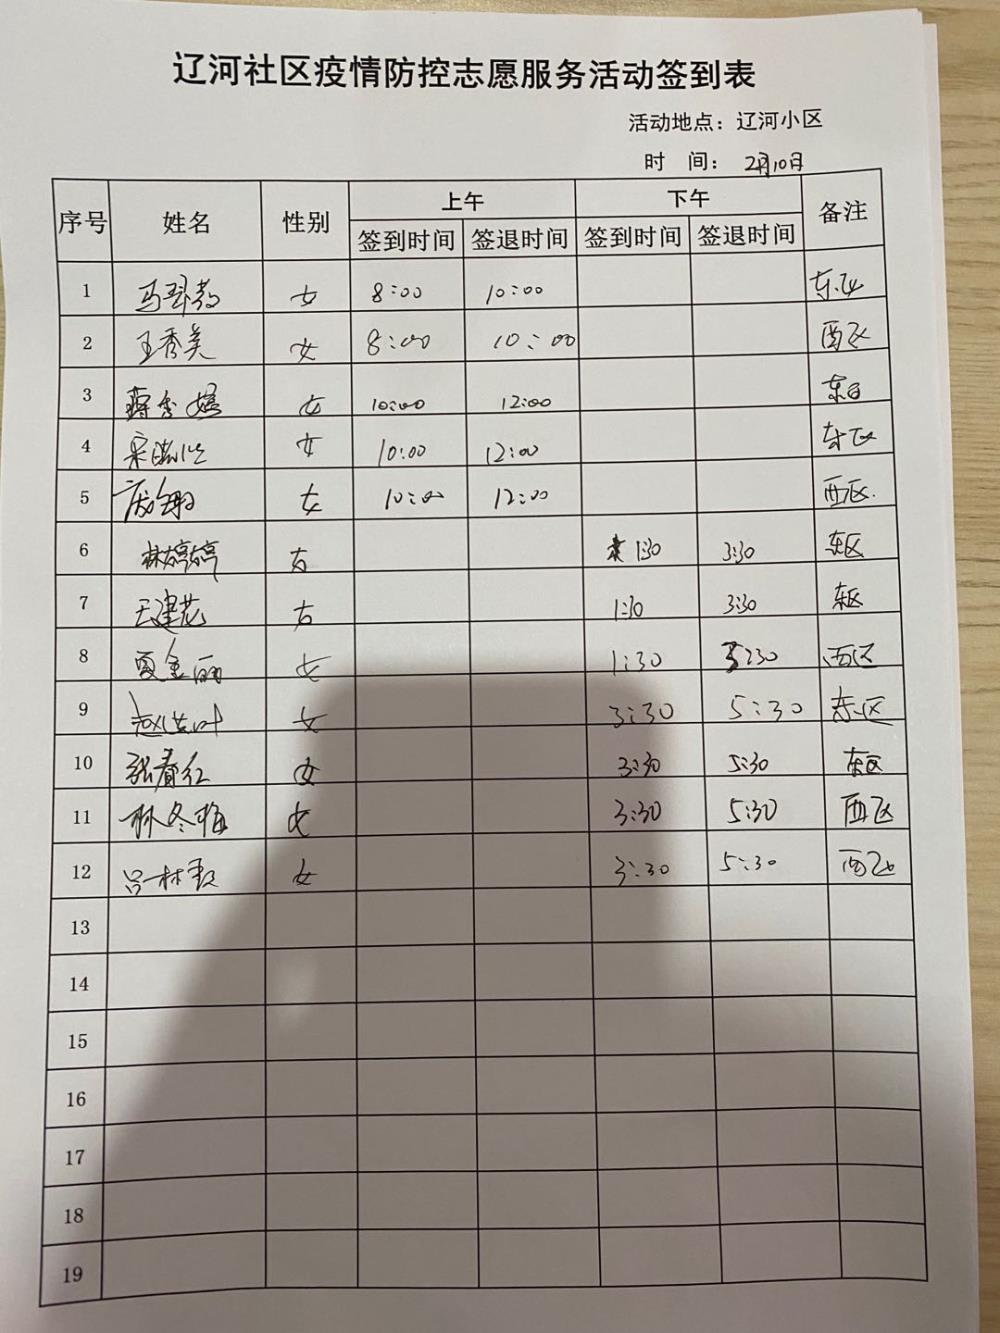 辽河社区疫情防控志愿服务活动签到表
活动地点：辽河小区
时 间： 2月10日
序号 姓名 性别 上午 下午 备注
签到时间 签退时间 签到时间 签退时间
1 女 8:00 10:00 东区
2 王秀美 女 8:00 10:00 西区
3 女 10:00 12:00
4 女 10:00 12:00 东区
5 女 10:00 12:00 西区.
6 林婷婷 女 1:30 3:30 东区
7 王建花 女 1:30 3:30 东区
8 夏金丽 女 1:30 3:30 西区
9 女 3:30 5:30 东区
10 张春红 女 3:30 5:30 东区
11 林冬梅 女 3:30 5:30 西区
12 女 3:30 5:30 西区
13
14
15
16
17
18
19